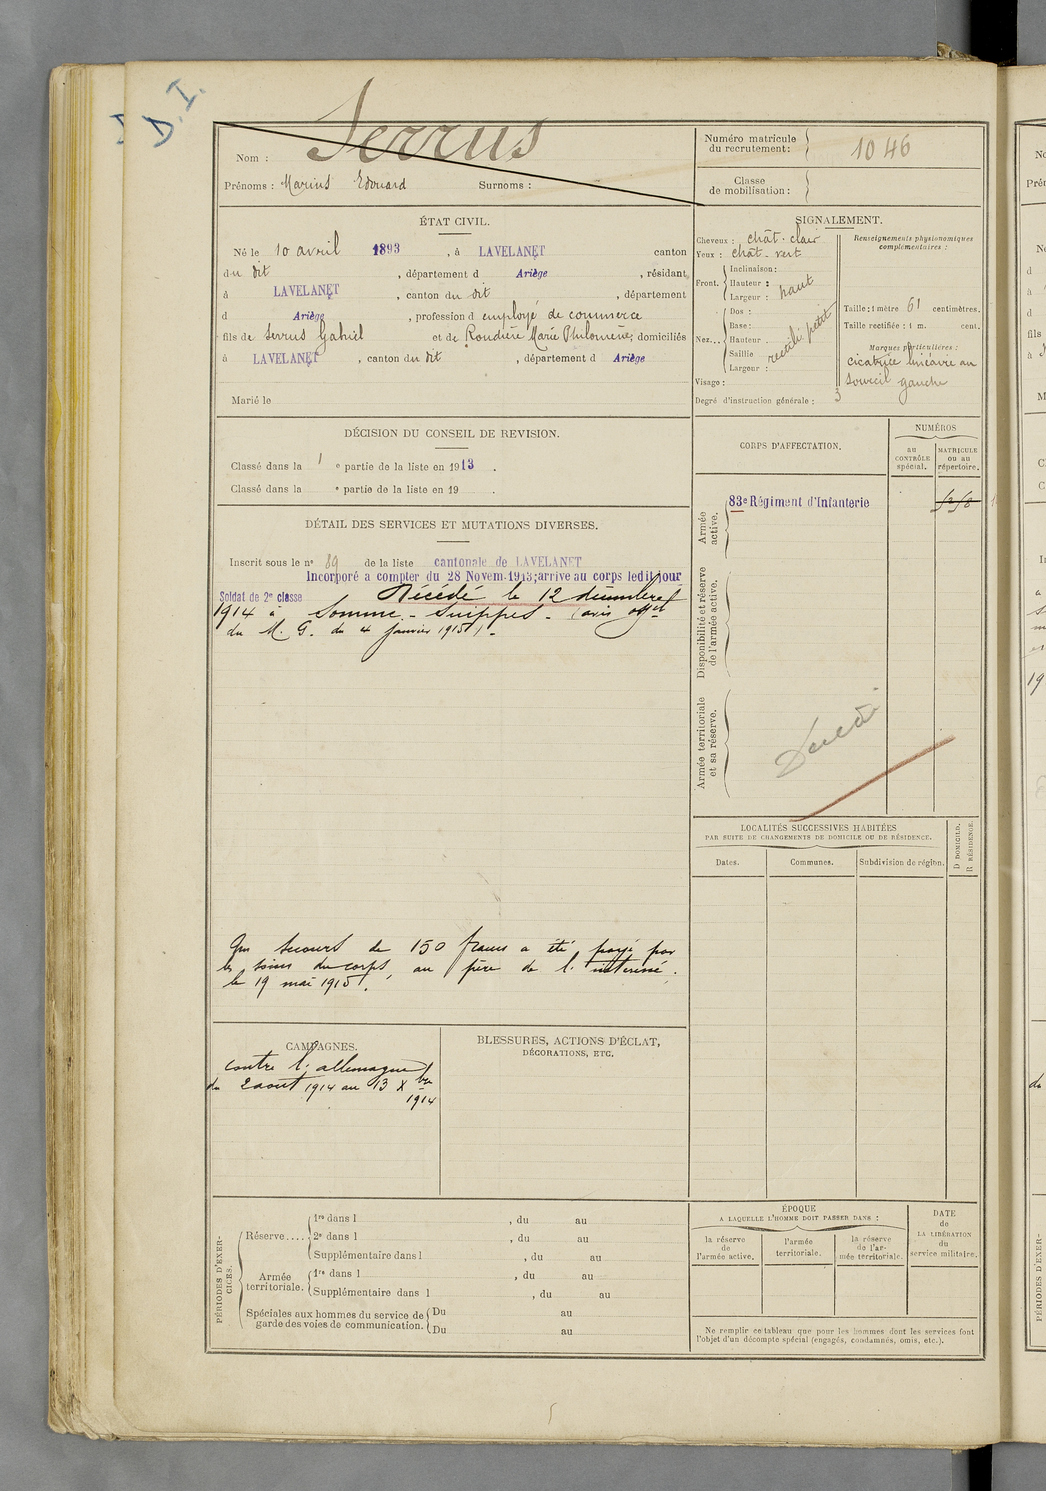 D. I.
Nom : Serrus
Prénoms : Marius Edouard Surnoms :
Numéro matricule du recrutement : 1046
Classe de mobilisation :
ÉTAT CIVIL.
Né le 10 avril 1893, à LAVELANET canton
du dit, département d Ariège, résidant
à LAVELANET, canton du dit, département
d Ariège, profession d employé de commerce
fils de Serrus Gabriel et de Roudière Marie Philomène, domiciliés
à LAVELANET, canton du dit, département d Ariège
Marié le
SIGNALEMENT.
Cheveux : chât-clair
Yeux : chât-vert
Front. Inclinaison :
Hauteur : haut
Largeur :
Nez... Dos :
Base :
Hauteur
Saillie
Largeur :
rectili petit
Visage :
Degré d'instruction générale : 3
Renseignements physionomiques complémentaires :
Taille : 1 mètre 61 centimètres.
Taille rectifiée : 1 m. cent.
Marques particulières :
cicatrice linéaire au
sourcil gauche
DÉCISION DU CONSEIL DE REVISION.
Classé dans la 1 e partie de la liste en 1913.
Classé dans la e partie de la liste en 19 .
DÉTAIL DES SERVICES ET MUTATIONS DIVERSES.
Inscrit sous le n° 89 de la liste cantonale de LAVELANET
Incorporé a compter du 28 Novem. 1913; arrive au corps ledit jour
Soldat de 2e classe Décédé le 12 décembre
1914 à Somme-Suippes - (avis offel
du M. G. du 4 janvier 1915) -
Un secours de 150 francs a été payé par
les soins du corps, au père de l'intéressé.
le 19 mai 1915.
CORPS D'AFFECTATION.
NUMÉROS
au CONTRÔLE spécial.
MATRICULE ou au répertoire.
Armée active.
83e Régiment d'Infanterie
Disponibilité et réserve de l'armée active.
Armée territoriale et sa réserve.
Décédé
LOCALITÉS SUCCESSIVES HABITÉES
PAR SUITE DE CHANGEMENTS DE DOMICILE OU DE RÉSIDENCE.
Dates. Communes. Subdivision de région.
D DOMICILE.
R RÉSIDENCE.
CAMPAGNES.
contre l'allemagne
du 2 aout 1914 au 13 Xbre
1914
BLESSURES, ACTIONS D'ÉCLAT,
DÉCORATIONS, ETC.
PÉRIODES D'EXERCICES.
Réserve.... 1re dans l , du au
2e dans l , du au
Supplémentaire dans l , du au
Armée territoriale. 1re dans l , du au
Supplémentaire dans l , du au
Spéciales aux hommes du service de garde des voies de communication. Du au
Du au
ÉPOQUE
A LAQUELLE L'HOMME DOIT PASSER DANS :
la réserve de l'armée active.
l'armée territoriale.
la réserve de l'armée territoriale.
DATE de LA LIBÉRATION du service militaire.
Ne remplir ce tableau que pour les hommes dont les services font
l'objet d'un décompte spécial (engagés, condamnés, omis, etc.).